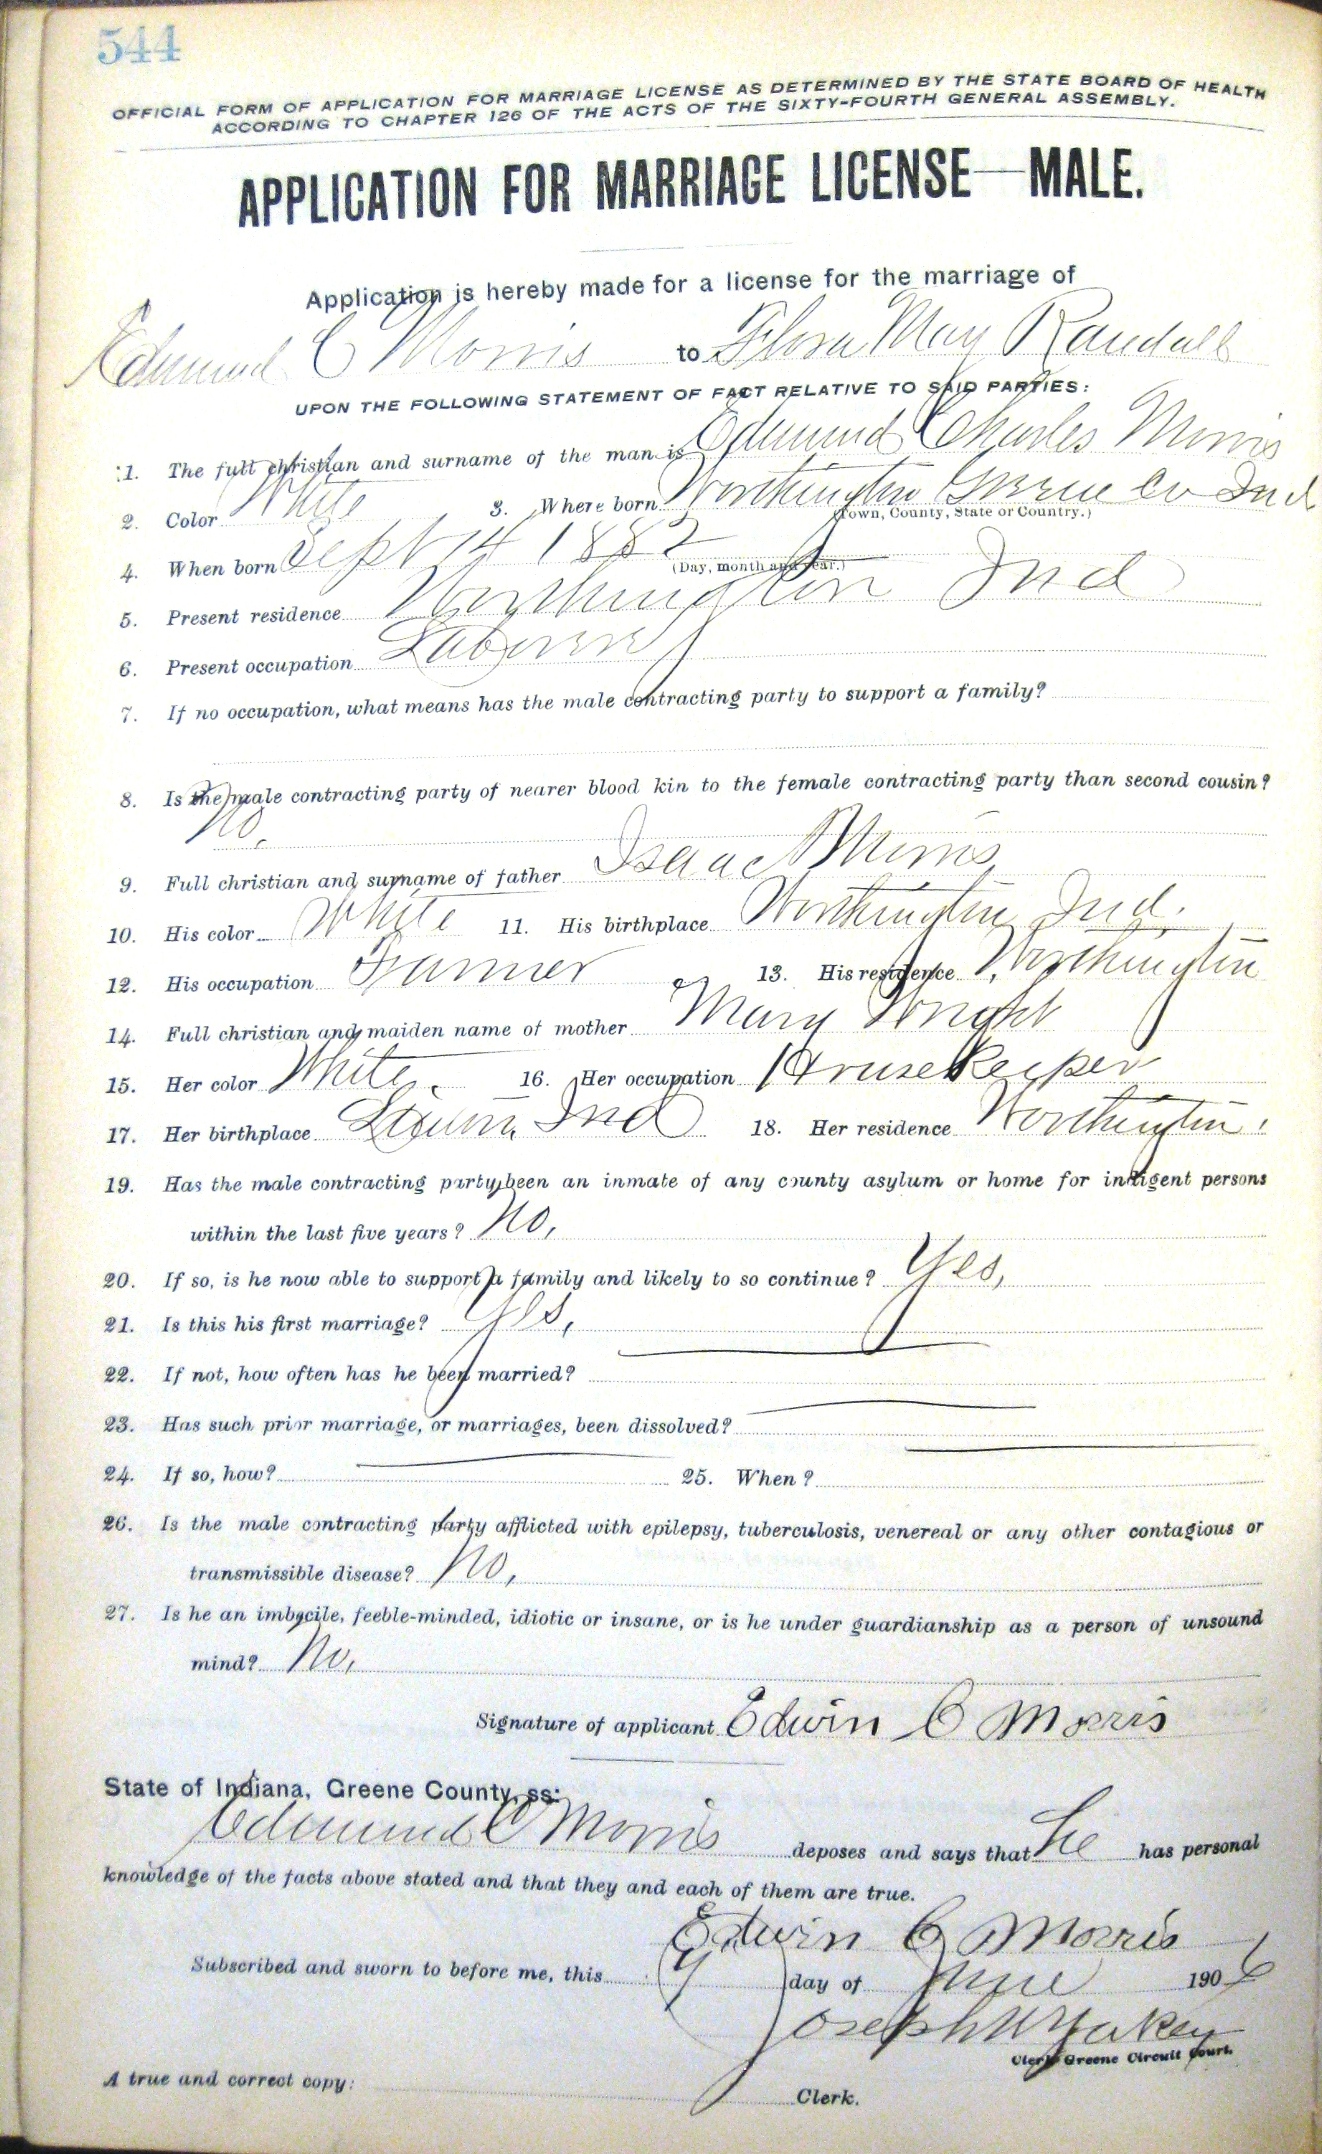 544
OFFICIAL FORM OF APPLICATION FOR MARRIAGE LICENSE AS DETERMINED BY THE STATE BOARD OF HEALTH
ACCORDING TO CHAPTER 126 OF THE ACTS OF THE SIXTY-FOURTH GENERAL ASSEMBLY.
APPLICATION FOR MARRIAGE LICENSE—MALE.
Application is hereby made for a license for the marriage of
Edmund C Morris to Flora May Randall
UPON THE FOLLOWING STATEMENT OF FACT RELATIVE TO SAID PARTIES:
1. The full christian and surname of the man is Edmund Charles Morris
2. Color White 3. Where born Worthington Greene Co Ind
(Town, County, State or Country.)
4. When born Sept 14 1882
(Day, month and year.)
5. Present residence Worthington Ind
6. Present occupation Laborer
7. If no occupation, what means has the male contracting party to support a family?
8. Is the male contracting party of nearer blood kin to the female contracting party than second cousin?
No,
9. Full christian and surname of father Isaac Morris
10. His color White 11. His birthplace Worthington Ind.
12. His occupation Farmer 13. His residence Worthington
14. Full christian and maiden name of mother Mary Wright
15. Her color White. 16. Her occupation House Keeper
17. Her birthplace Ind 18. Her residence Worthington
19. Has the male contracting party been an inmate of any county asylum or home for indigent persons
within the last five years? No,
20. If so, is he now able to support a family and likely to so continue? Yes,
21. Is this his first marriage? Yes,
22. If not, how often has he been married?
23. Has such prior marriage, or marriages, been dissolved?
24. If so, how? 25. When?
26. Is the male contracting party afflicted with epilepsy, tuberculosis, venereal or any other contagious or
transmissible disease? No,
27. Is he an imbecile, feeble-minded, idiotic or insane, or is he under guardianship as a person of unsound
mind? No,
Signature of applicant Edwin C Morris
State of Indiana, Greene County, ss:
Edmund C Morris deposes and says that he has personal
knowledge of the facts above stated and that they and each of them are true.
Edwin C Morris
Subscribed and sworn to before me, this 9" day of June 1906
Joseph W Yakey
Clerk Greene Circuit Court.
A true and correct copy: Clerk.